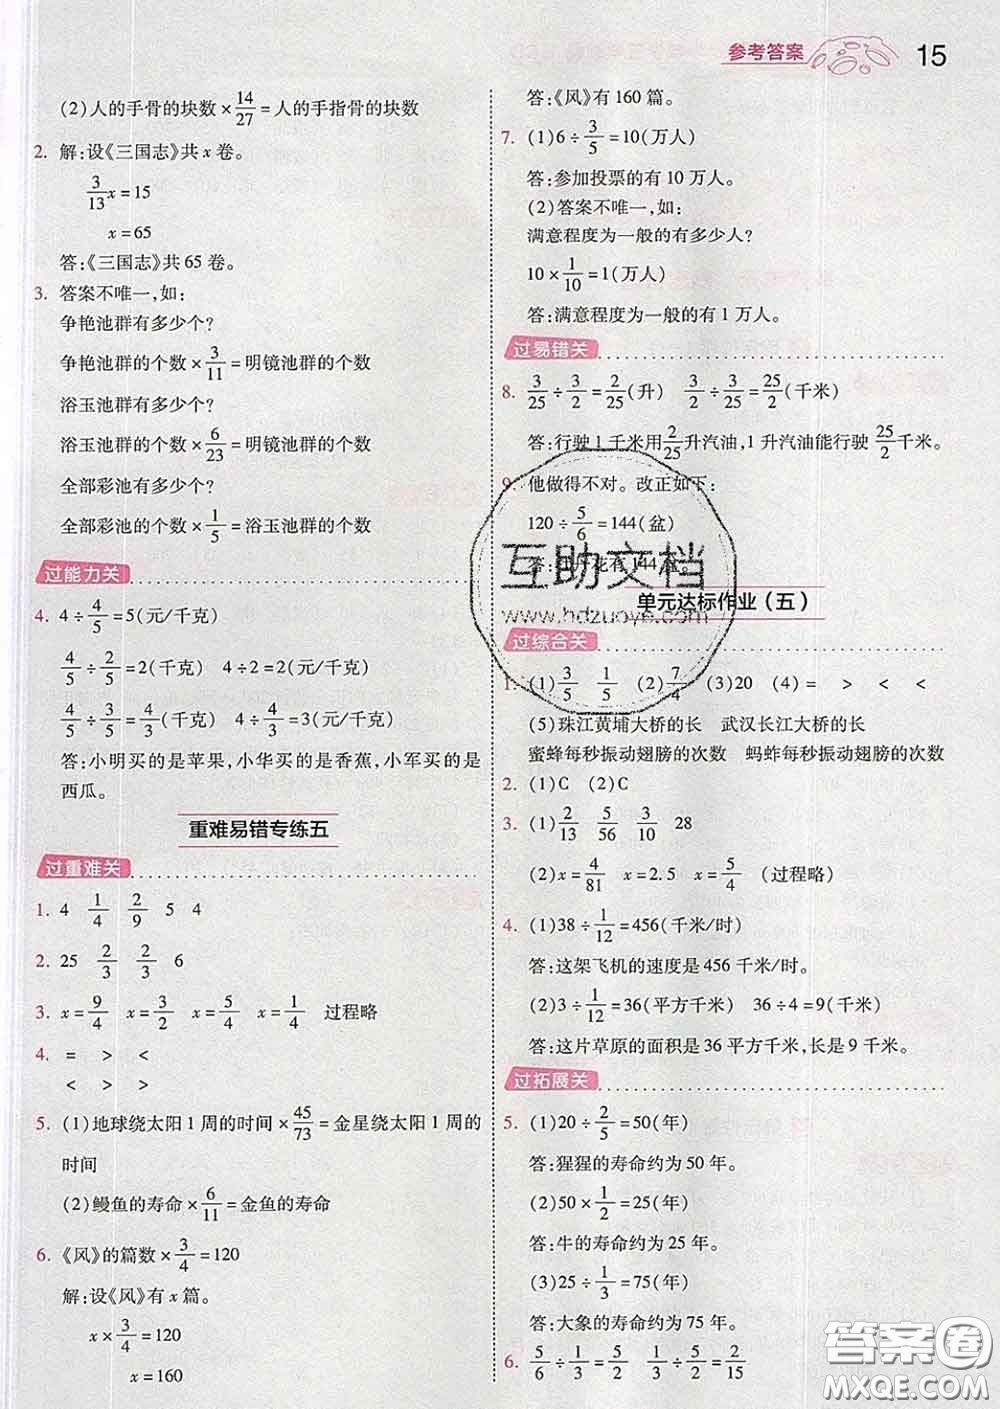 参考答案 15
(2)人的手骨的块数×14/27=人的手指骨的块数
2. 解:设《三国志》共x卷。
3/13x=15
x=65
答:《三国志》共65卷。
3. 答案不唯一,如:
争艳池群有多少个?
争艳池群的个数×3/11=明镜池群的个数
浴玉池群有多少个?
浴玉池群的个数×6/23=明镜池群的个数
全部彩池有多少个?
全部彩池的个数×1/5=浴玉池群的个数
过能力关
4. 4÷4/5=5(元/千克)
4/5÷2/5=2(千克) 4÷2=2(元/千克)
4/5÷3/5=4/3(千克) 4÷4/3=3(元/千克)
答:小明买的是苹果,小华买的是香蕉,小军买的是
西瓜。
重难易错专练五
过重难关
1. 4 1/4 2/9 5 4
2. 25 2/3 2/3 6
3. x=9/4 x=3/2 x=5/4 x=1/4 过程略
4. = > <
< > >
5. (1)地球绕太阳1周的时间×45/73=金星绕太阳1周的
时间
(2)鳗鱼的寿命×6/11=金鱼的寿命
6. 《风》的篇数×3/4=120
解:设《风》有x篇。
x×3/4=120
x=160
答:《风》有160篇。
7. (1)6÷3/5=10(万人)
答:参加投票的有10万人。
(2)答案不唯一,如:
满意程度为一般的有多少人?
10×1/10=1(万人)
答:满意程度为一般的有1万人。
过易错关
8. 3/25÷3/2=2/25(升) 3/2÷3/25=25/2(千米)
答:行驶1千米用2/25升汽油,1升汽油能行驶25/2千米。
9. 他做得不对。改正如下:
120÷5/6=144(盆)
互助文档
www.hdzuoye.com
单元达标作业(五)
过综合关
1. (1)3/5 1/5 (2)7/4 (3)20 (4)= > < <
(5)珠江黄埔大桥的长 武汉长江大桥的长
蜜蜂每秒振动翅膀的次数 蚂蚱每秒振动翅膀的次数
2. (1)C (2)C
3. (1)2/13 5/56 3/10 28
(2)x=4/81 x=2.5 x=5/4 (过程略)
4. (1)38÷1/12=456(千米/时)
答:这架飞机的速度是456千米/时。
(2)3÷1/12=36(平方千米) 36÷4=9(千米)
答:这片草原的面积是36平方千米,长是9千米。
过拓展关
5. (1)20÷2/5=50(年)
答:猩猩的寿命约为50年。
(2)50×1/2=25(年)
答:牛的寿命约为25年。
(3)25÷1/3=75(年)
答:大象的寿命约为75年。
6. 5/6÷1/3=5/2 1/3÷5/2=2/15
答案圈
MXQE.COM